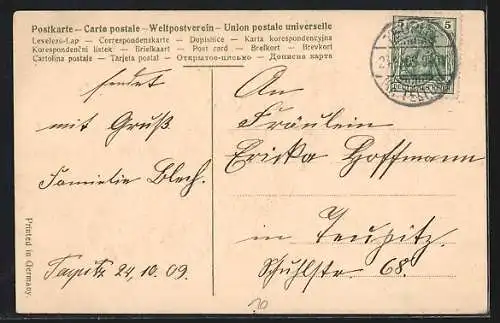 Postkarte – Carte postale – Weltpostverein – Union postale universelle
Levelezo-Lap – Correspondenskarte – Dopisnice – Karta korespondencyjna
Korespondenční listek – Briefkaart – Post card – Brefkort – Brevkort
Cartolina postale – Tarjeta postal – Открытое письмо – Дописна карта
5 5
sendet
mit Gruß
Familie Blech.
An
Fräulein
Ericka Hoffmann
in Teupitz
Schuhlstr. 68.
24.10.09.
Printed in Germany
10